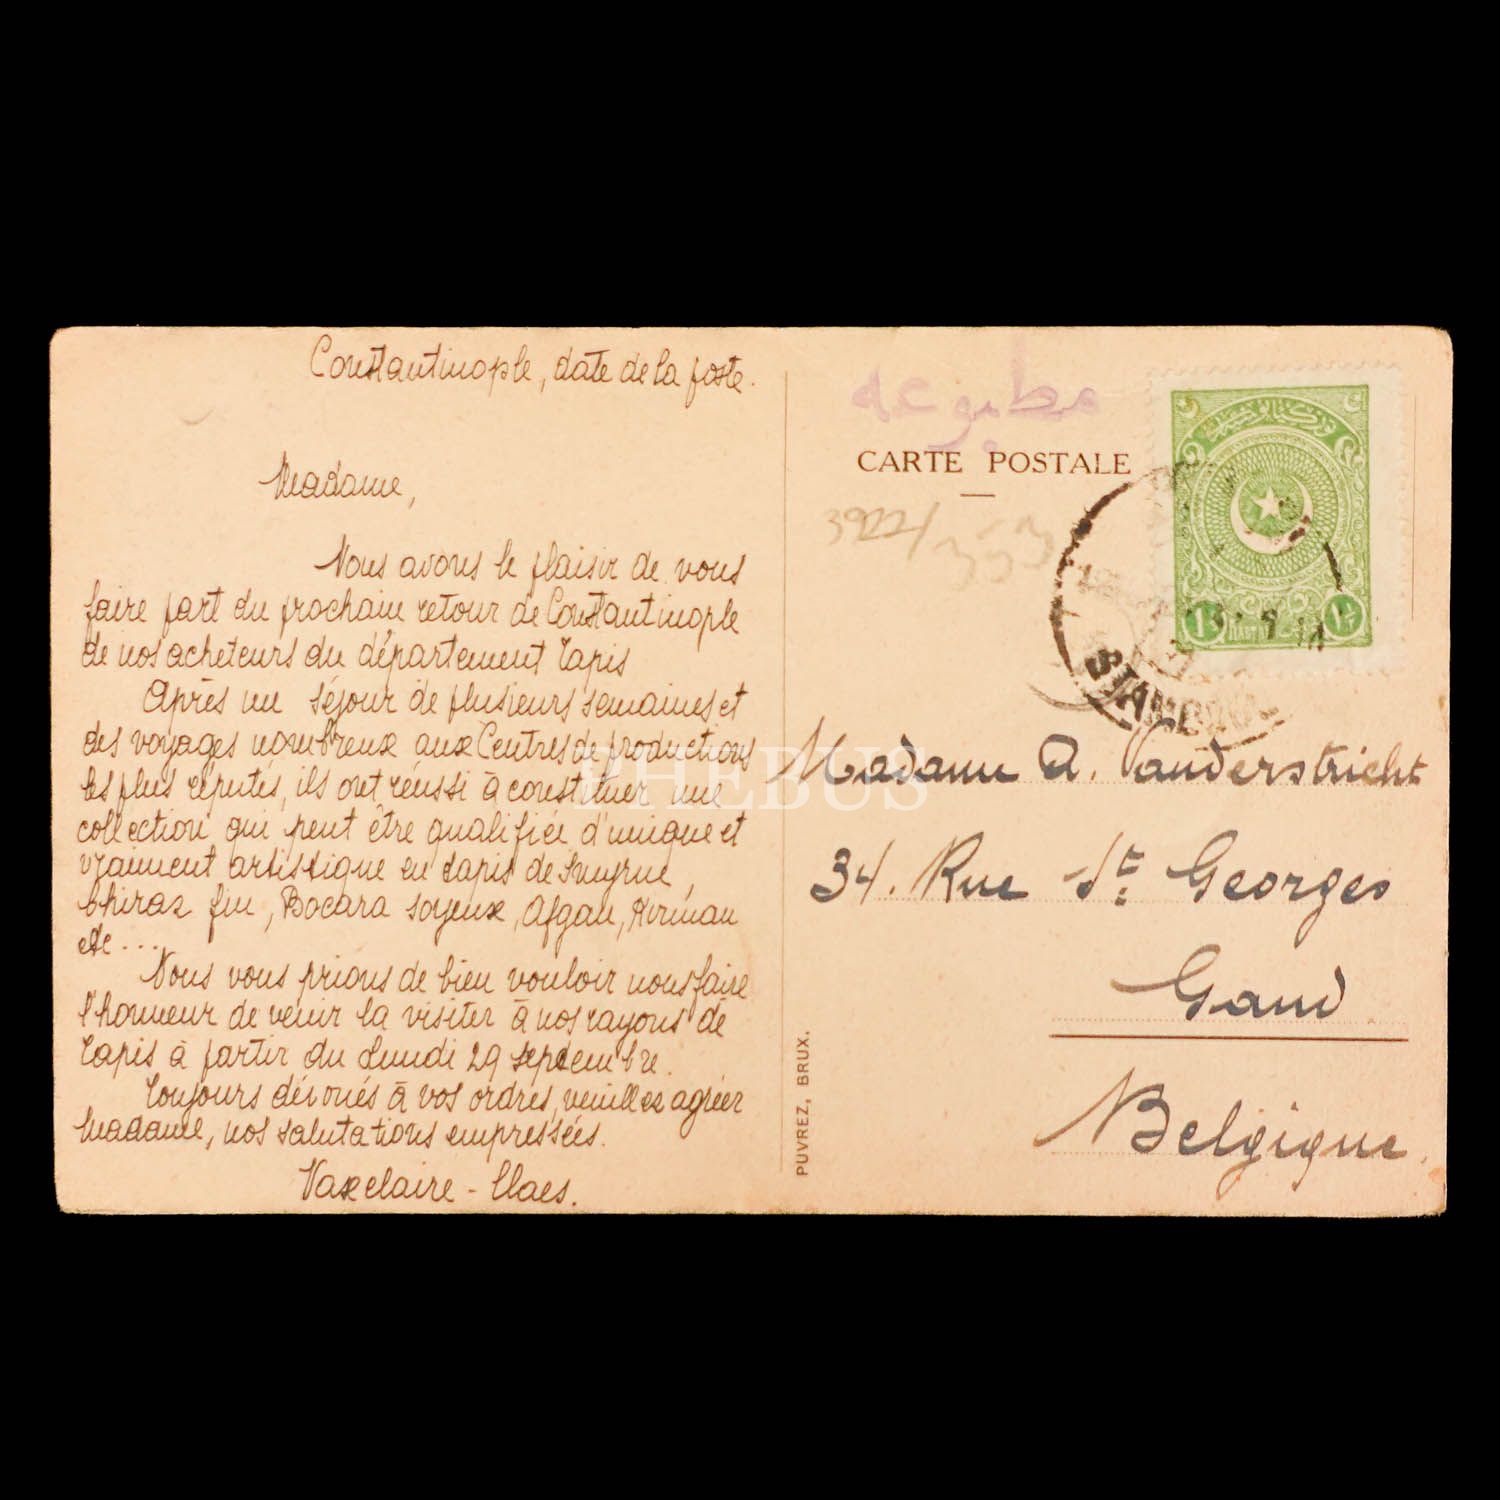 Constantinople, date de la poste.
Madame,
Nous avons le plaisir de vous
faire part du prochain retour de Constantinople
de nos acheteurs du département Tapis
Après un séjour de plusieurs semaines et
des voyages nombreux aux Centres de productions
les plus réputés, ils ont réussi à constituer une
collection qui peut être qualifiée d'unique et
vraiment artistique en tapis de Smyrne,
Chiraz fin, Bocara soyeux, Afgan, Kirman
etc...
Nous vous prions de bien vouloir nous faire
l'honneur de venir la visiter à nos rayons de
Tapis à partir du Lundi 29 septembre.
Toujours dévoués à vos ordres, veuillez agréer
Madame, nos salutations empressées.
Vaxelaire-Claes.
مطبوعه
CARTE POSTALE
3922/
STAMBOUL
Madame A. Vanderstricht
34. Rue St. Georges
Gand
Belgique.
PUVREZ, BRUX.
PHEBUS